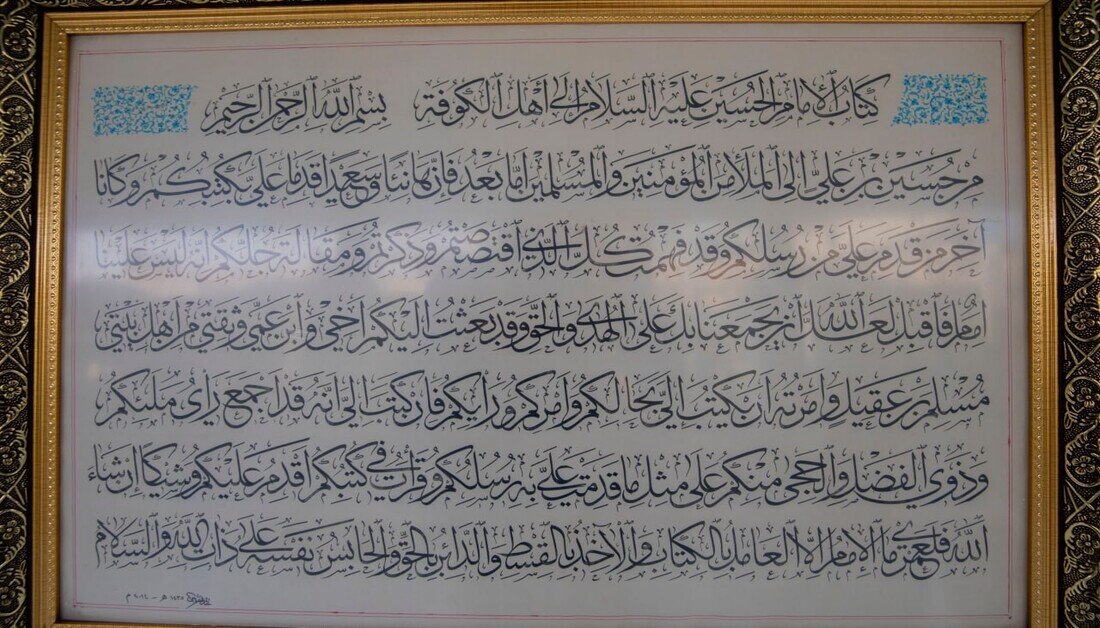 كتاب الإمام الحسين عليه السلام إلى أهل الكوفة بسم الله الرحمن الرحيم
من حسين بن علي إلى الملأ من المؤمنين والمسلمين أما بعد فإن هانئا وسعيدا قدما علي بكتبكم وكانا
آخر من قدم علي من رسلكم وقد فهمت كل الذي اقتصصتم وذكرتم ومقالة جلكم أنه ليس علينا
إمام فاقبل لعل الله أن يجمعنا بك على الهدى والحق وقد بعثت إليكم أخي وابن عمي وثقتي من أهل بيتي
مسلم بن عقيل وأمرته أن يكتب إلي بحالكم وأمركم ورأيكم فإن كتب إلي أنه قد أجمع رأي ملئكم
وذوي الفضل والحجى منكم على مثل ما قدمت علي به رسلكم وقرأت في كتبكم أقدم عليكم وشيكا إن شاء
الله فلعمري ما الإمام إلا العامل بالكتاب والآخذ بالقسط والدائن بالحق والحابس نفسه على ذات الله والسلام
١٤٣٥ هـ - ٢٠١٤ م